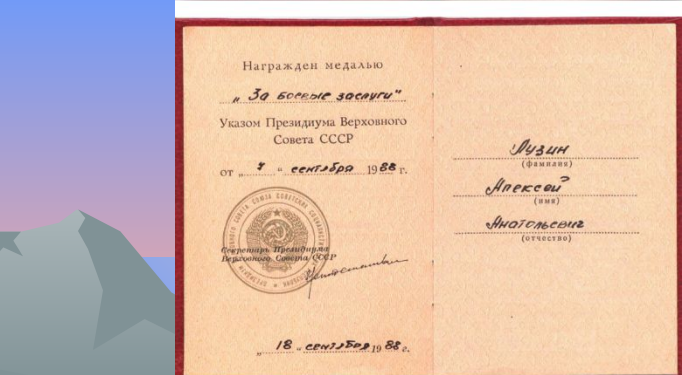 Награжден медалью
„За боевые заслуги"
Указом Президиума Верховного
Совета СССР
от „7" сентября 1988 г.
Секретарь Президиума
Верховного Совета СССР
„18" сентября 1988 г.
Лузин
(фамилия)
Алексей
(имя)
Анатольевич
(отчество)